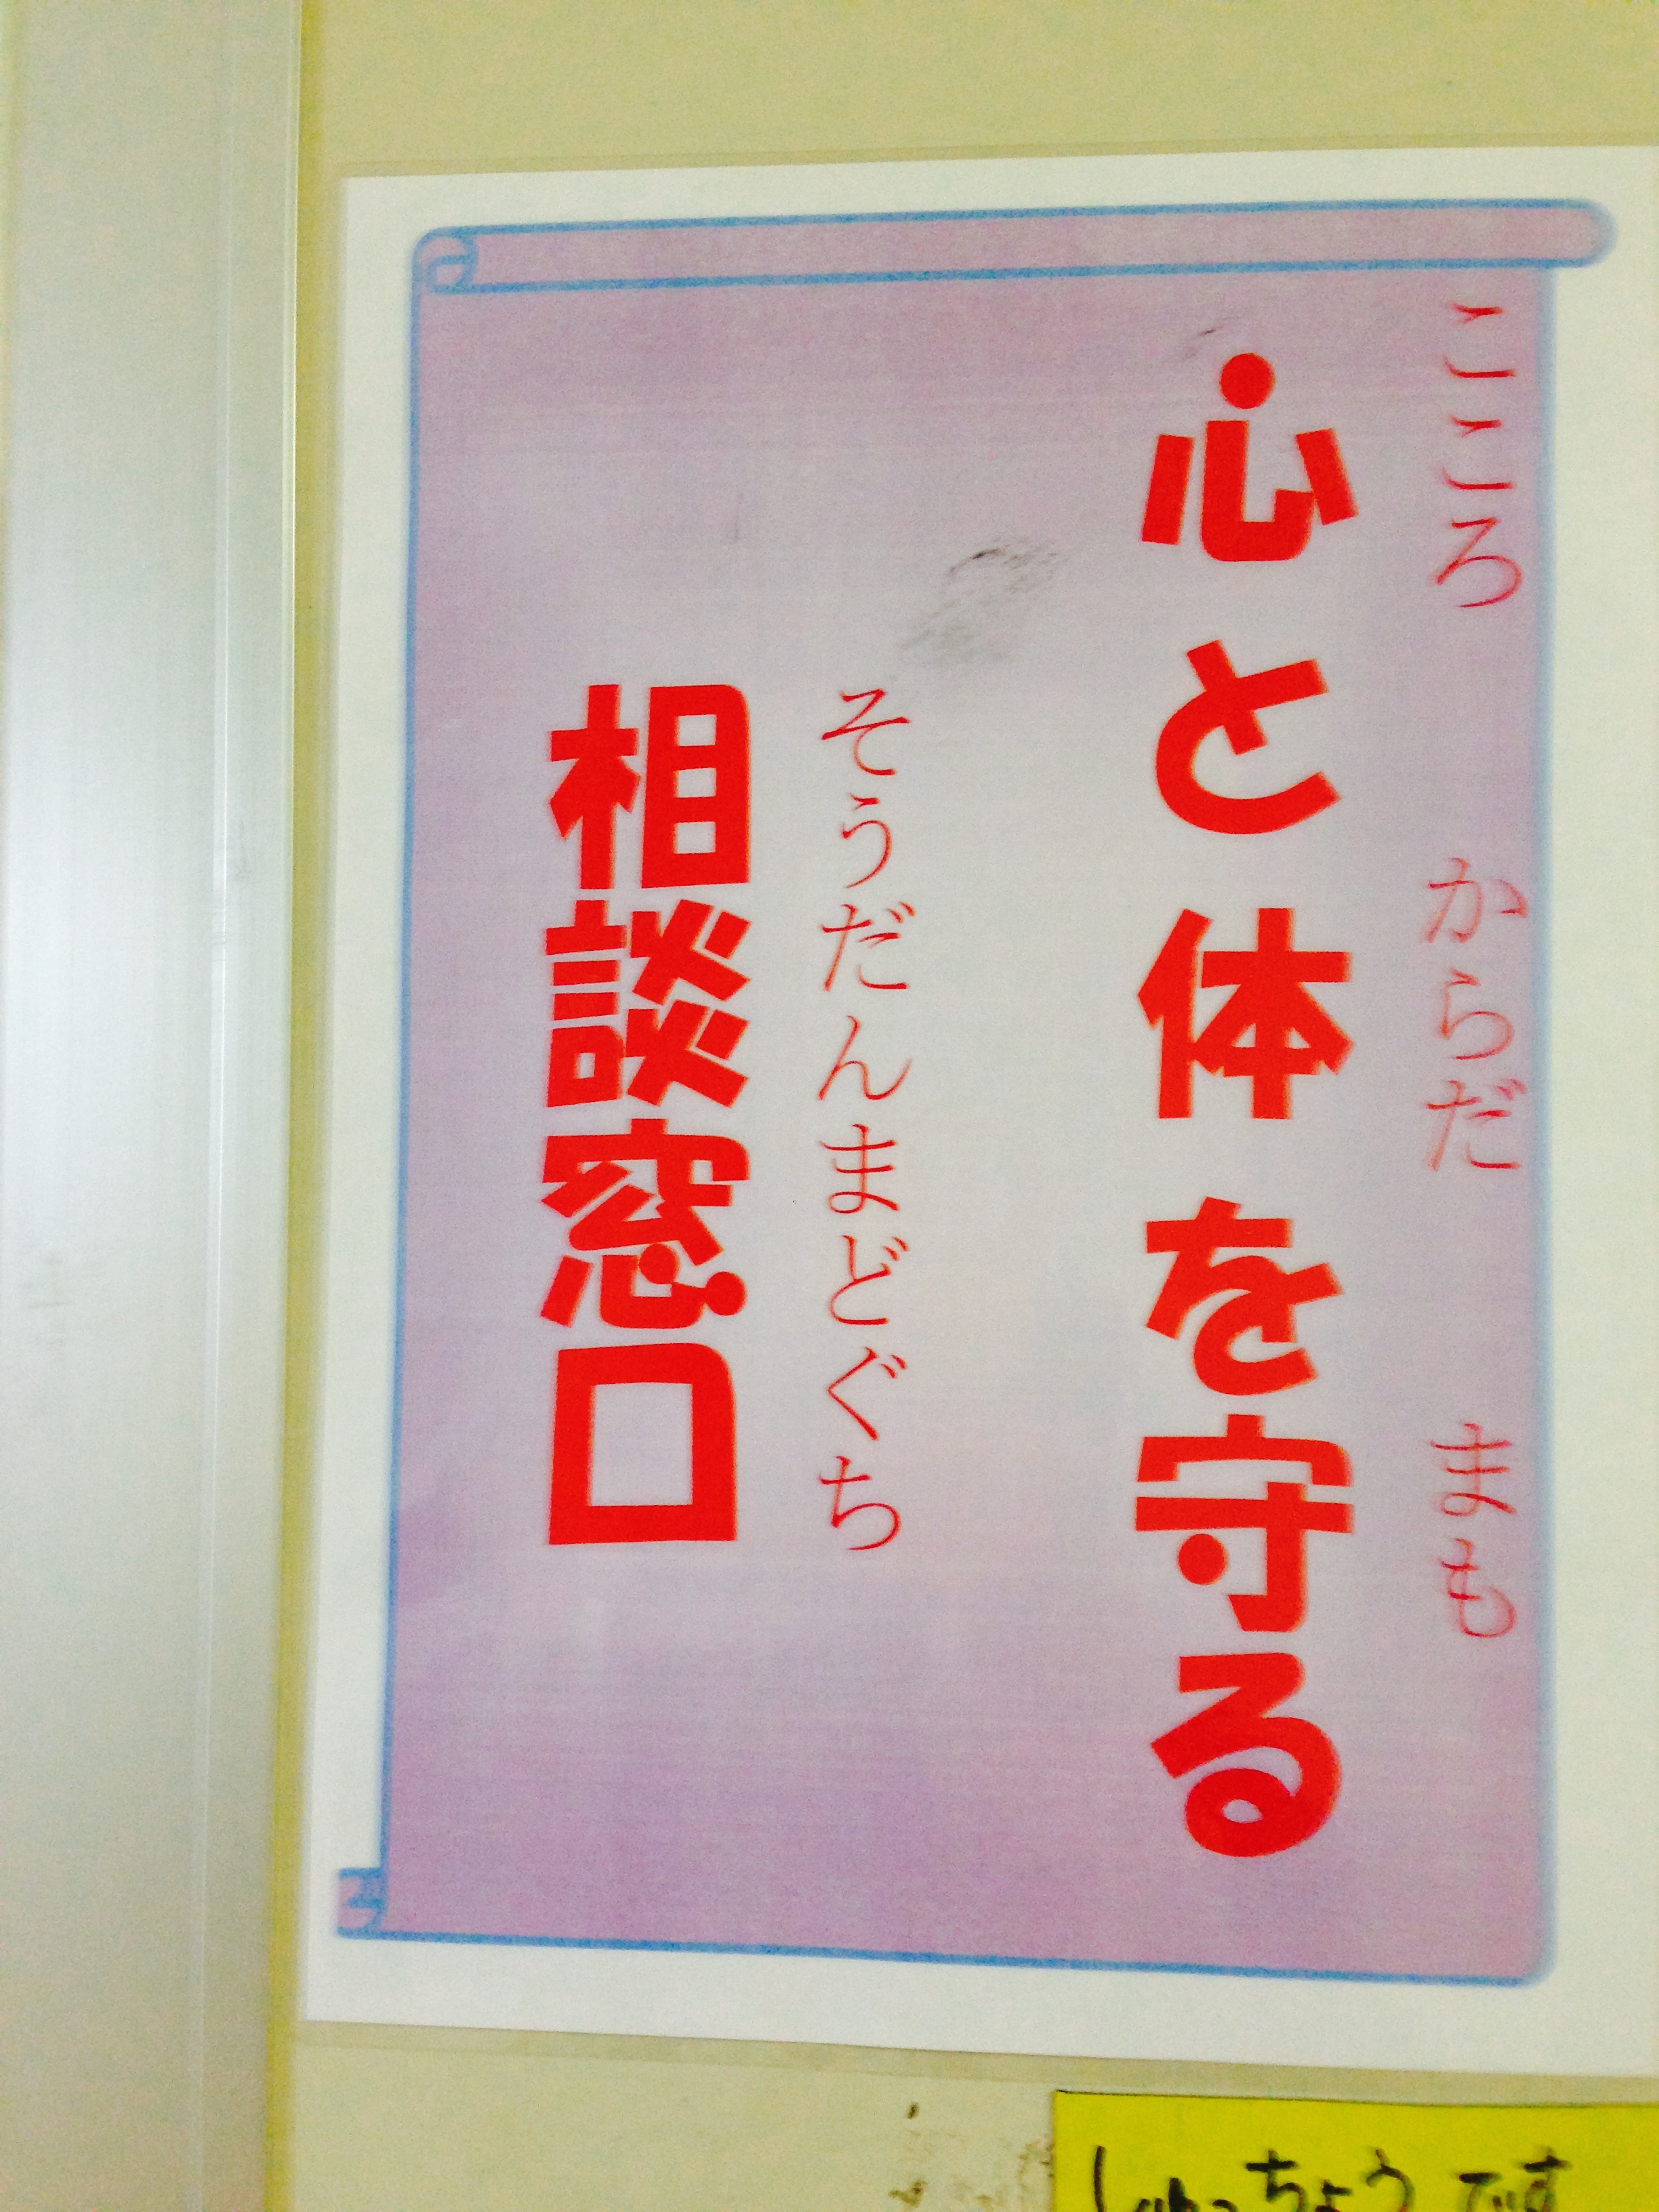 こころ からだ まも
心と体を守る
そうだんまどぐち
相談窓口
しゅっちょうです